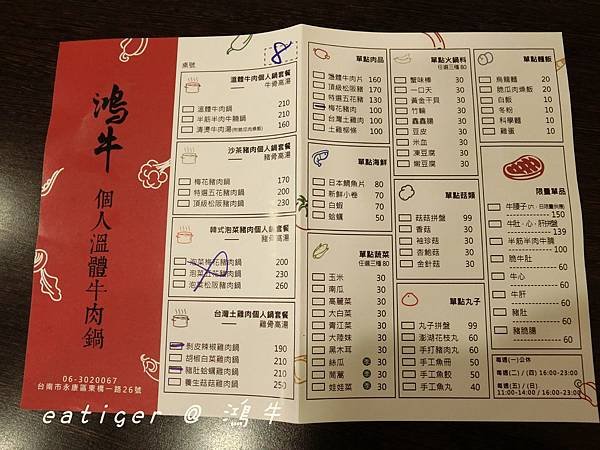 鴻牛
個人溫體牛肉鍋
06-3020067
台南市永康區東橋一路26號
桌號
8
溫體牛肉個人鍋套餐
牛骨高湯
溫體牛肉鍋 210
半筋半肉牛腩鍋 210
清燙牛肉湯(附脆瓜肉燥飯) 160
沙茶豬肉個人鍋套餐
豬骨高湯
梅花豬肉鍋 170
特選五花豬肉鍋 200
頂級松阪豬肉鍋 230
韓式泡菜豬肉個人鍋套餐
豬骨高湯
泡菜梅花豬肉鍋 200
泡菜五花豬肉鍋 230
泡菜松阪豬肉鍋 260
台灣土雞肉個人鍋套餐
雞骨高湯
剝皮辣椒雞肉鍋 190
胡椒白菜雞肉鍋 210
豬肚蛤蠣雞肉鍋 210
養生菇菇雞肉鍋 250
單點肉品
溫體牛肉片 160
頂級松阪豬 170
特選五花豬 130
梅花豬肉 100
台灣土雞肉 100
土雞柳條 100
單點海鮮
日本鯛魚片 80
新鮮小卷 70
白蝦 70
蛤蠣 50
單點蔬菜
任選三種 80
玉米 30
南瓜 30
高麗菜 30
大白菜 30
青江菜 30
大陸妹 30
黑木耳 30
絲瓜 30
茼蒿 30
娃娃菜 30
單點火鍋料
任選三種 80
蟹味棒 30
一口天 30
黃金干貝 30
竹輪 30
鑫鑫腸 30
豆皮 30
米血 30
凍豆腐 30
嫩豆腐 30
單點菇類
菇菇拼盤 99
香菇 30
袖珍菇 30
杏鮑菇 30
金針菇 30
單點丸子
丸子拼盤 99
澎湖花枝丸 30
手打豬肉丸 30
手工魚冊 30
手工魚餃 50
手工魚丸 40
單點麵飯
烏龍麵 20
脆瓜肉燥飯 20
白飯 10
冬粉 10
科學麵 10
雞蛋 10
限量單品
150
牛肚、心、肝拼盤
139
半筋半肉牛腩
100
脆牛肚
60
牛心
60
牛肝
60
豬肚
60
豬脆腸
60
每週(一)公休
每週(二)/(四) 16:00-23:00
每週(五)/(日)
11:00-14:00 / 16:00-23:00
eatiger @ 鴻牛